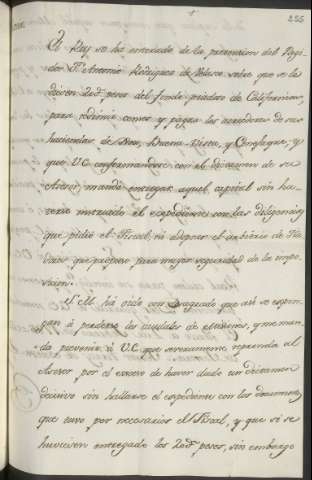 255
El Rey se ha enterado de la pretencion del Regi-
dor Dn. Antonio Rodriguez de Velasco sobre que se le
diesen 20d pesos del fondo piadoso de Californias,
para redimir censos y pagar los acredores de sus
haciendas de Buena Vista, y
que V.E. conformandose con el dictamen de su
Asesor mandó entregar aquel capital sin ha-
verse instruido el expediente con las diligencias
que pidió el Fiscal, ni adoptar el arbitrio de
que propuso para mayor seguridad de la impo-
sicion.
S.M. ha oido con desagrado que asi se espon-
gan á perderse los caudales de y me man-
da prevenir á V.E. que severamente reprenda al
Asesor por el exceso de haver dado un dictamen
decisivo sin hallarse el expediente con los documentos
que tuvo por necesarios el Fiscal, y que si se
huviesen entregado los 20d pesos, sin embargo